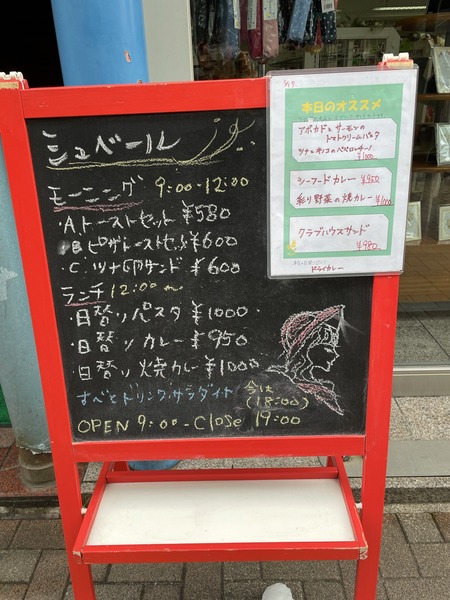 シュベール
モーニング 9:00-12:00
・A.トーストセット ¥580
・B ピザトーストセット ¥600
・C.ツナ卵サンド ¥600
ランチ 12:00〜
・日替りパスタ ¥1000
・日替り カレー ¥950
・日替り 焼カレー ¥1000
すべてドリンク.サラダイナ
今は
(18:00)
OPEN 9:00-Close 19:00
本日のオススメ
アボカドとサーモンの
トマトクリームパスタ
ツナとキノコのペペロンチーノ
¥1000
シーフードカレー ¥950
彩り野菜の焼カレー ¥1000
クラブハウスサンド
¥980
ドライカレー